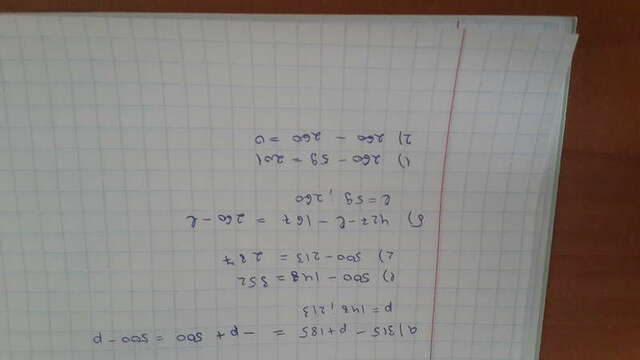 а) 315 - p + 185 = - p + 500 = 500 - p
p = 148, 213
1) 500 - 148 = 352
2) 500 - 213 = 287
б) 427 - l - 167 = 260 - l
l = 59, 260
1) 260 - 59 = 201
2) 260 - 260 = 0